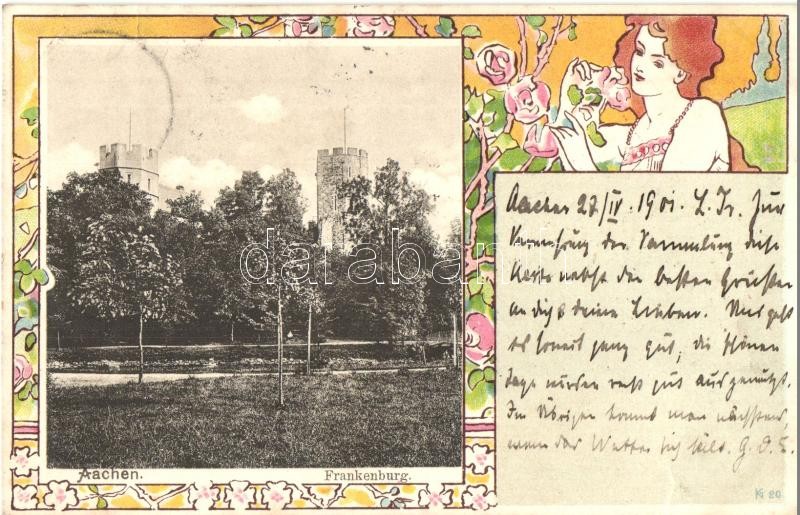 Aachen 27/IV. 1901. L. Fr. Zur
Vermehrung der Sammlung diese
Karte nebst den besten Grüßen
an dich & deine Lieben. Uns geht
es soweit ganz gut, die schönen
Tage wurden recht gut ausgenützt.
Im Übrigen kommt man nächstens,
wenn das Wetter sich hält. G. D. E.
databanka
Aachen.
Frankenburg.
KG 20